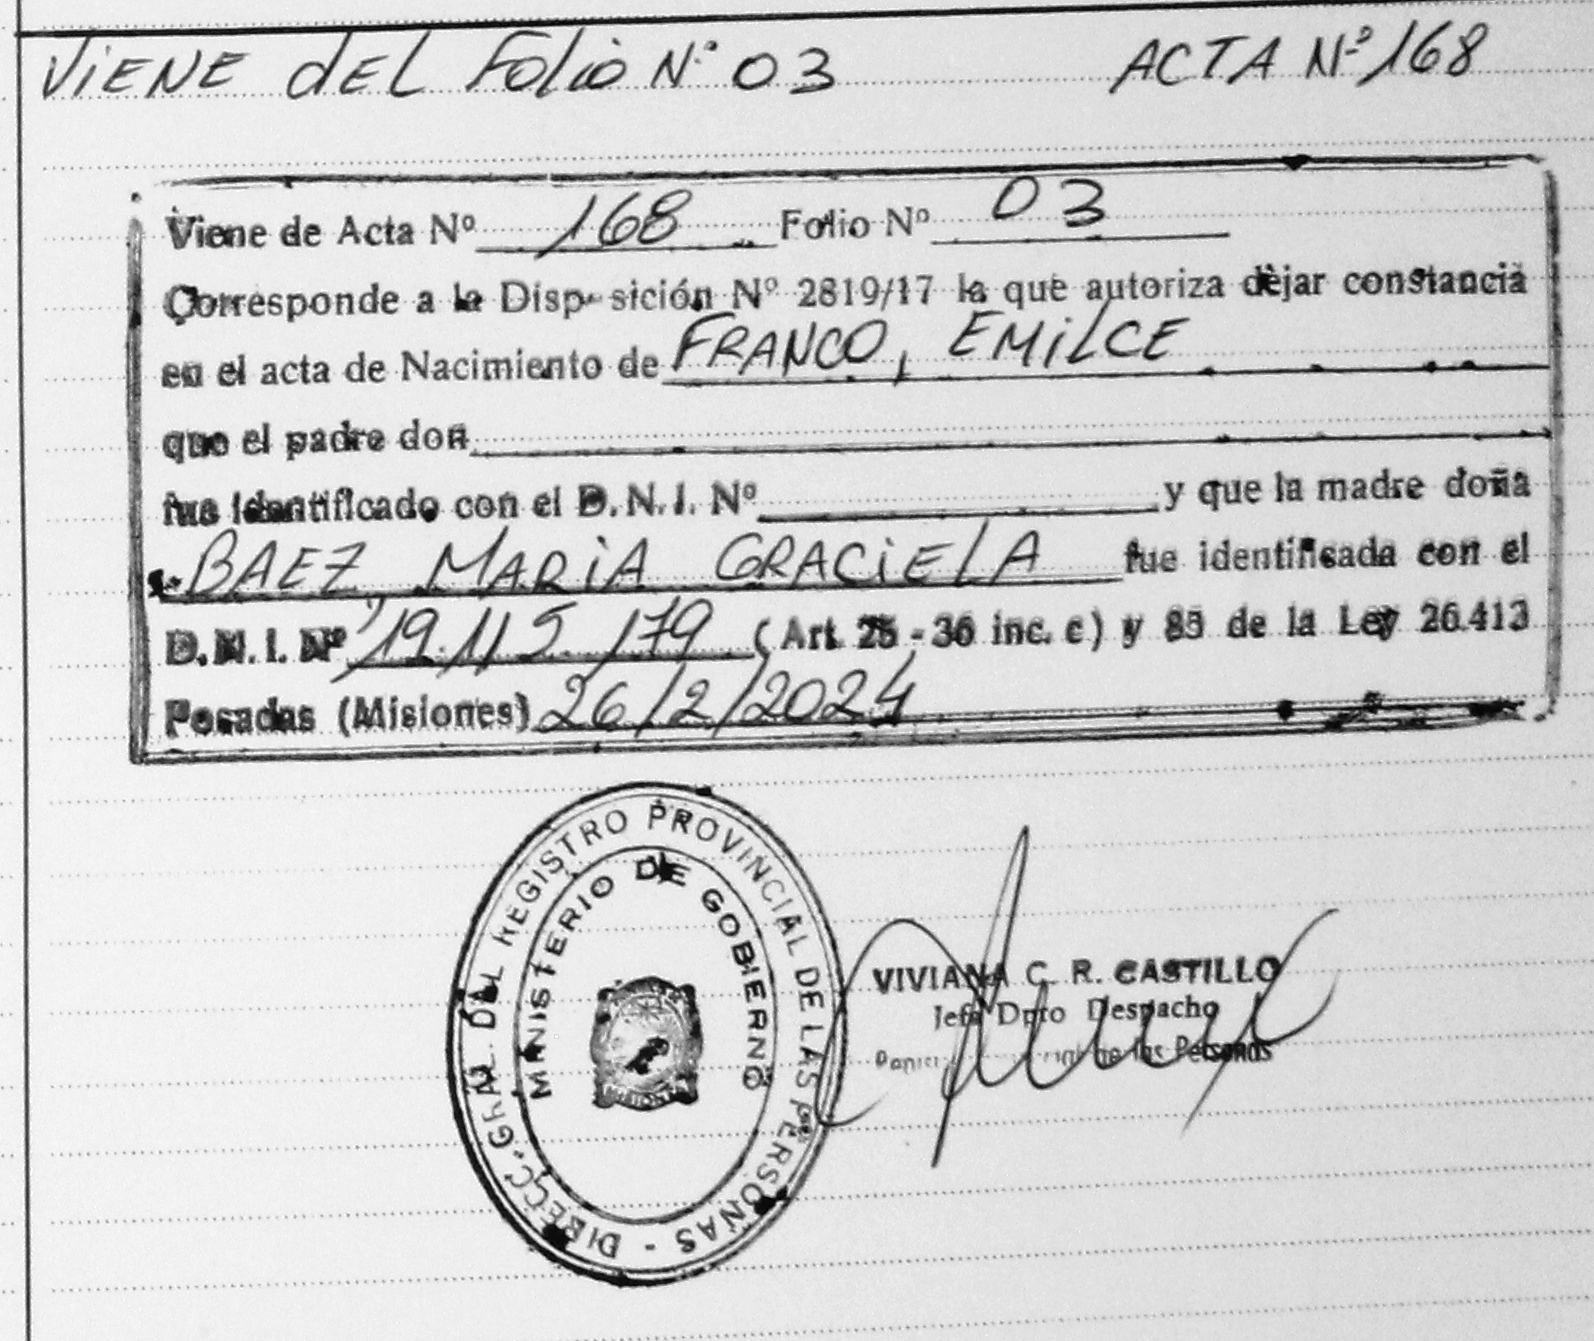 ViENE dEL Folio N° 03 ACTA N° 168
Viene de Acta Nº 168 Folio Nº 03
Corresponde a la Disp sición Nº 2819/17 la que autoriza dejar constancia
en el acta de Nacimiento de FRANCO, EMiLCE
que el padre don
fue identificado con el D.N.I. Nº y que la madre doña
BAEZ, MARiA GRACiELA fue identificada con el
D.N.I. Nº 19.115.179 (Art. 25 - 36 inc. c) y 85 de la Ley 26.413
Posadas (Misiones) 26/2/2024
DIRECC. GRAL. DEL REGISTRO PROVINCIAL DE LAS PERSONAS -
MINISTERIO DE GOBIERNO
VIVIANA C. R. CASTILLO
Jefa Dpto Despacho
de las Personas